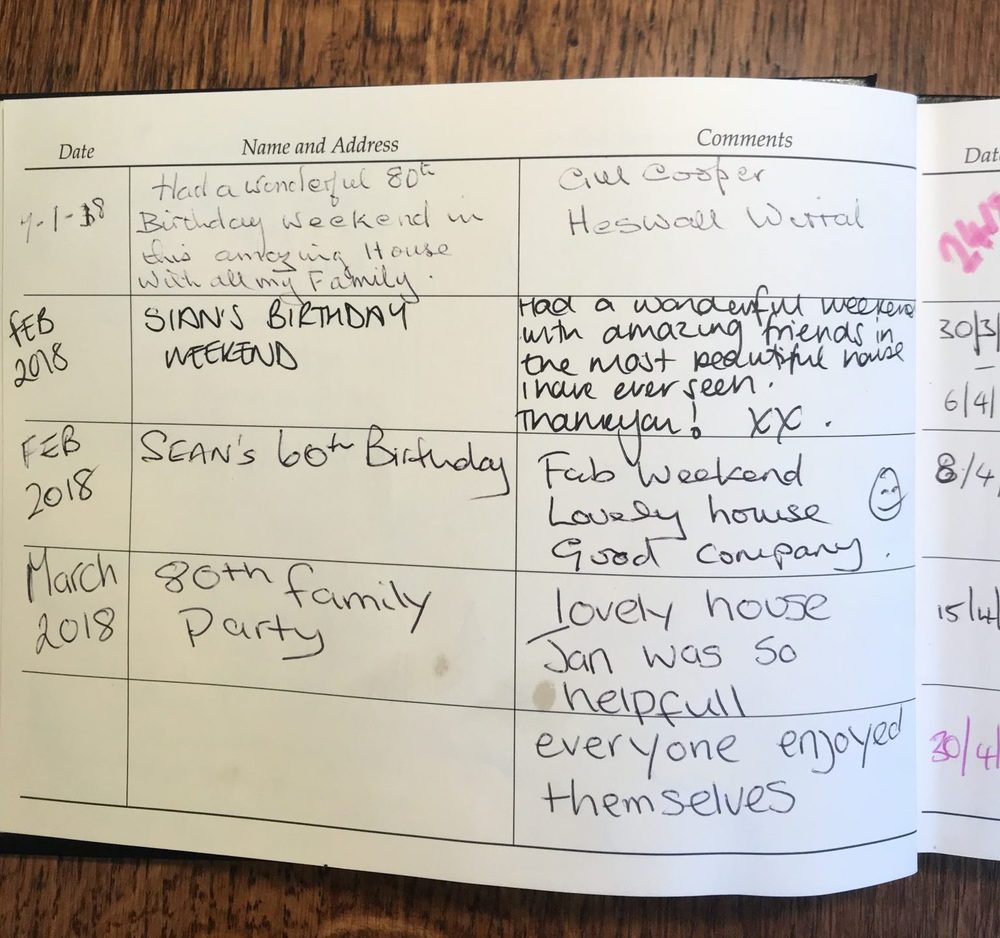 Date Name and Address Comments
7-1-18
Had a wonderful 80th
Birthday weekend in
this amazing House
With all my Family.
Gill Cooper
Heswall Wirral
FEB
2018
SIAN'S BIRTHDAY
WEEKEND
Had a wonderful weekend
with amazing friends in
the most beautiful house
I have ever seen.
Thankyou! XX.
FEB
2018
SEAN'S 60th Birthday
Fab Weekend
Lovely house
Good company.
March
2018
80th family
Party
lovely house
Jan was so
helpfull
everyone enjoyed
themselves
30/3/
6/4/
8/4/
15/4/
30/4/